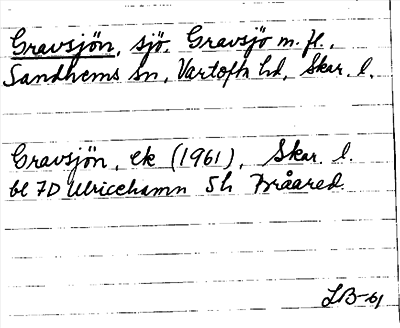 Gravsjön, sjö. Gravsjö m. fl.,
Sandhems sn, Vartofta hd, Skar. l.
Gravsjön, ek (1961), Skar. l.
bl 7D Ulricehamn 5h Bråared
LB-61